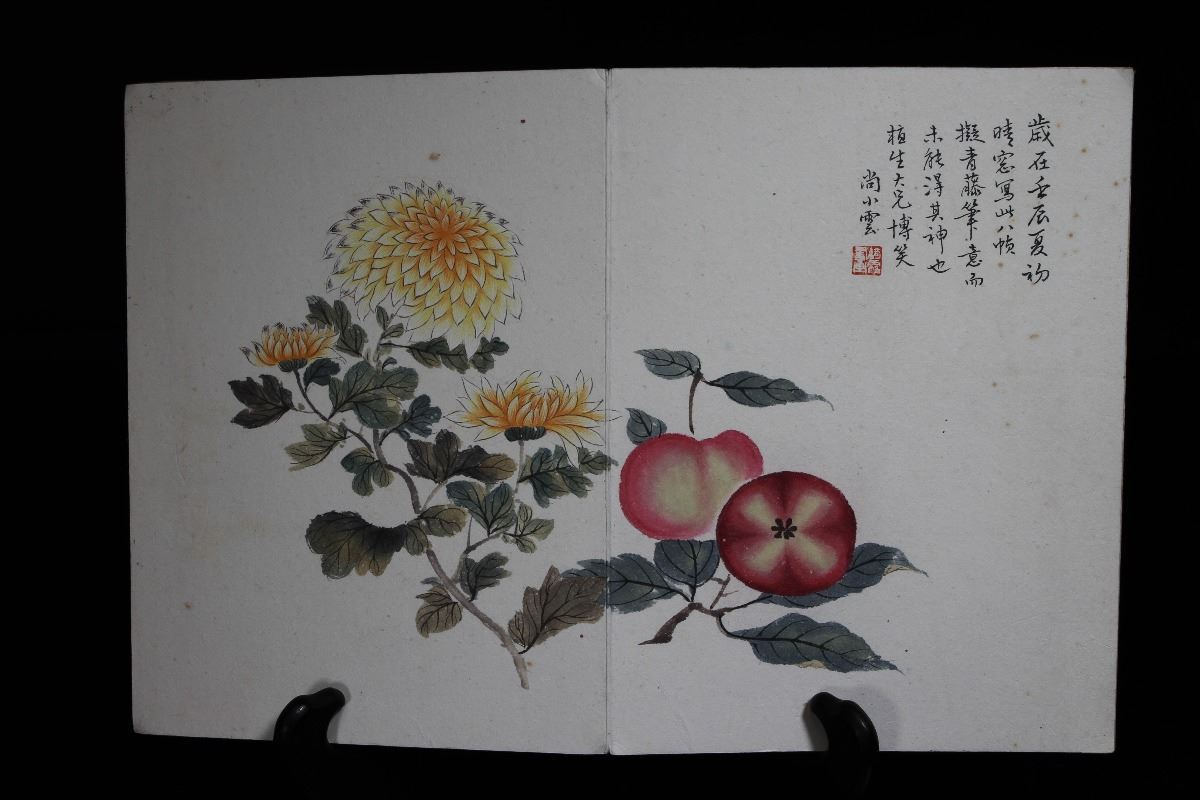 歲在壬辰夏初
晴窓寫此八幀
擬青藤筆意而
未能得其神也
植生大兄博笑
尚小雲